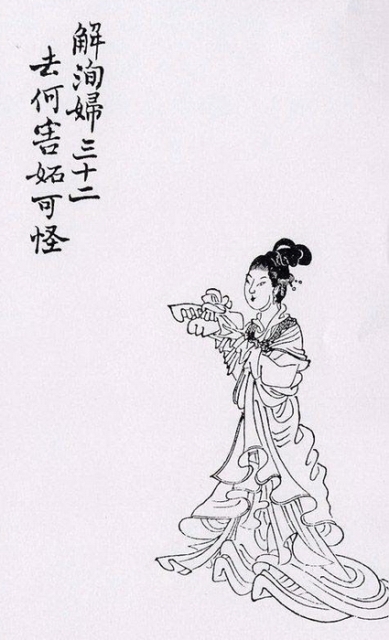 解洵婦三十二
去何害妬可怪